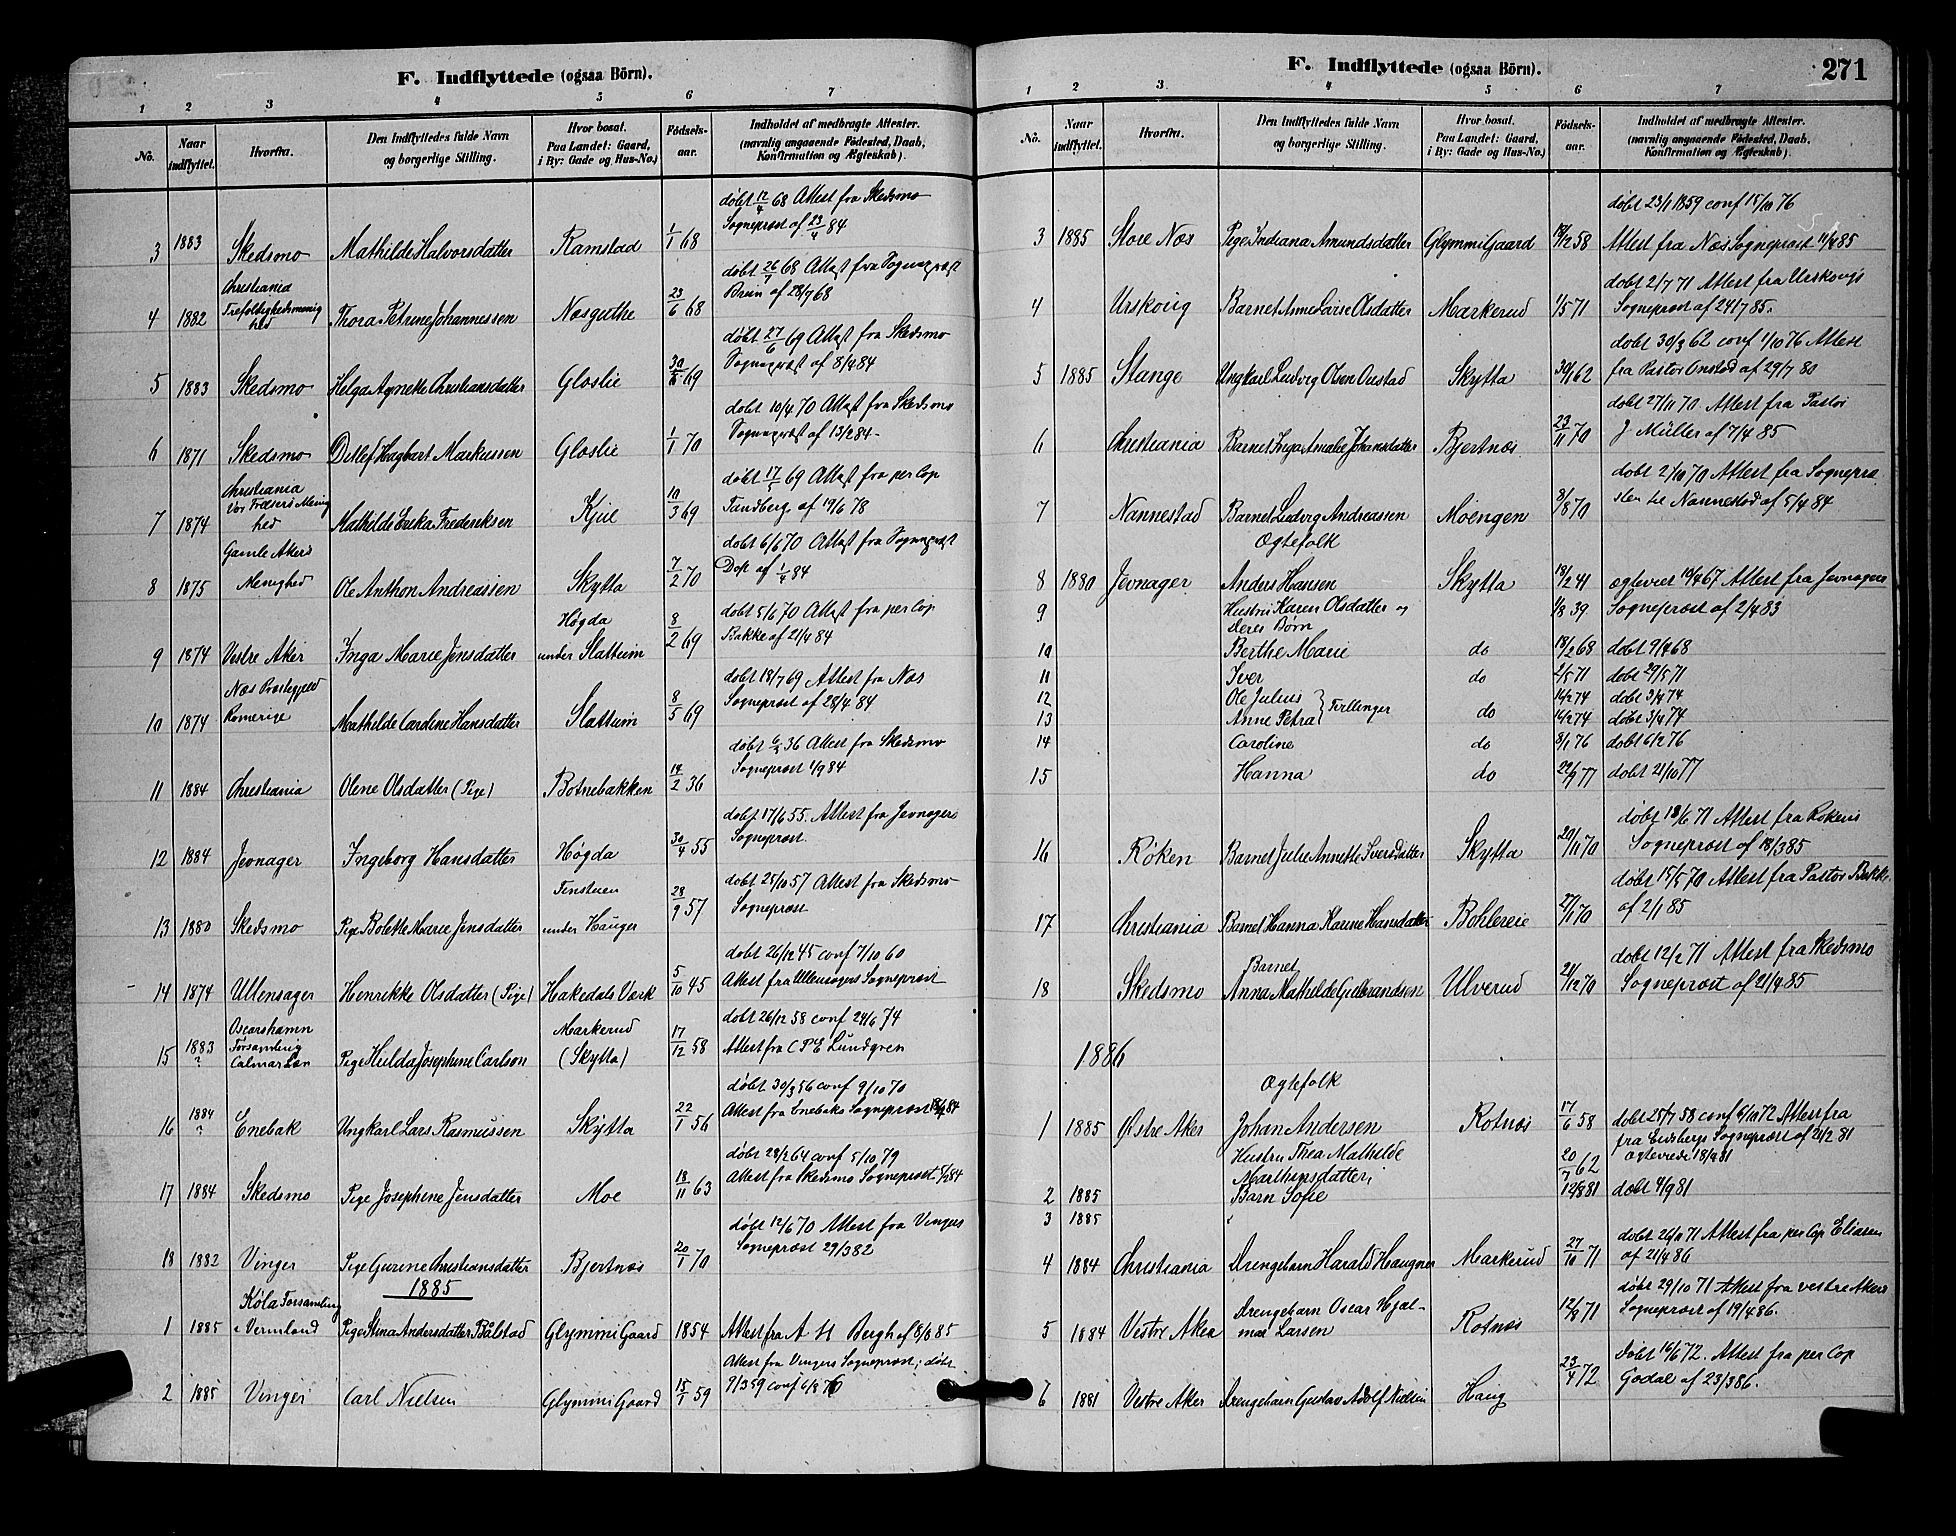 F. Indflyttede (ogsaa Börn).
1 2 3 4 5 6 7
No. Naar indflyttet. Hvorfra. Den Indflyttedes fulde Navn og borgerlige Stilling. Hvor bosat. Paa Landet: Gaard, i By: Gade og Hus-No.) Födsels-aar. Indholdet af medbragte Attester. (navnlig angaaende Födested, Daab, Konfirmation og Ægteskab).
døbt 12/4 68 Attest fra Skedsmo
Sogneprest af 23/4 84
3 1883 Skedsmo Mathilde Halvorsdatter Ramstad 1/1 68
Christiania døbt 26/7 68 Attest fra Sogneprest
Trefoldighedsmenighed Bruun af 28/9 68
4 1882 Thora Petrine Johannessen Næsguthe 23/6 68
døbt 27/6 69 Attest fra Skedsmo
Sogneprest af 8/4 84
5 1883 Skedsmo Helga Agnette Christiansdatter Gloslie 69
døbt 10/4 70 Attest fra Skedsmo
Sogneprest af 13/2 84
6 1871 Skedsmo Detlef Hagbart Markussen Gloslie 1/1 70
Christiania døbt 17/5 69 Attest fra per Cap
Vor Frelsers Menighed Tandberg af 19/6 78
7 1874 Mathilde Erika Frederiksen Kjul 10/3 69
Gamle Akers døbt 6/6 70 Attest fra Sogneprest
Menighed Dop af 1/4 84
8 1875 Ole Anthon Andreassen Skytta 7/2 70
Høgda døbt 5/6 70 Attest fra per Cap
Bakke af 21/4 84
9 1874 Vestre Aker Inga Marie Jensdatter under Slattum 8/2 69
Næs Prestegjeld døbt 18/7 69 Attest fra Næs
Romerige Sogneprest af 28/4 84
10 1874 Mathilde Caroline Hansdatter Slattum 8/5 69
36 Attest fra Skedsmo
Sogneprest 1/9 84
11 1884 Christiania Olene Olsdatter (Pige) Botnebakken 19/2 36
døbt 17/6 55. Attest fra Jevnager
Sogneprest.
12 1884 Jevnager Ingeborg Hansdatter Høgda 30/4 55
døbt 25/10 57 Attest fra Skedsmo
Sogneprest
13 1880 Skedsmo Pige Bolette Marie Jensdatter under Hauger 28/9 57
døbt 26/12 45 conf 7/10 60
Attest fra Ullensagers Sogneprest
14 1874 Ullensager Henrikke Olsdatter (Pige) Hakedals Værk 5/10 45
Oscarshamn Markerud døbt 26/12 58 conf 24/6 74
Forsamling Attest fra C P E Lundgren
15 1883 ? Calmar Læn Pige Hulda Josephine Carlson (Skytta) 17/12 58
døbt 30/3 56 conf 9/10 70
Attest fra Enebaks Sogneprest 84
16 1884 ? Enebak Ungkarl Lars Rasmussen Skytta 22/1 56
døbt 28/2 64 conf 5/10 79
Attest fra Skedsmo Sogneprest 84
17 1884 Skedsmo Pige Josephine Jensdatter Moe 18/11 63
døbt 12/6 70 Attest fra Vingers
Sogneprest 29/3 82
18 1882 Vinger Pige Gurine Christiansdatter Bjertnæs 20/1 70
1885
Køla Forsamling
1 1885 i Vermland Pige Stina Andersdatter Bålstad Glymmi Gaard 1854 Attest fra A H Bergh af 8/8 85
Attest fra Vingers Sogneprest; døbt
9/3 59 conf 6/8 76
2 1885 Vinger Carl Nielsen Glymmi Gaard 15/1 59
F. Indflyttede (ogsaa Börn). 271
1 2 3 4 5 6 7
No. Naar indflyttet. Hvorfra. Den Indflyttedes fulde Navn og borgerlige Stilling. Hvor bosat. Paa Landet: Gaard, i By: Gade og Hus-No.) Födsels-aar. Indholdet af medbragte Attester. (navnlig angaaende Födested, Daab, Konfirmation og Ægteskab).
døbt 23/1 1859 conf 15/10 76
3 1885 Store Næs Pige Indiana Amundsdatter Glymmi Gaard 58 Attest fra Næs Sogneprest 11/4 85
døbt 2/7 71 Attest fra Urskougs
4 Urskoug Barnet Anne Larse Olsdatter Markerud 1/5 71 Sogneprest af 24/7 85.
døbt 30/3 62 conf 1/10 76 Attest
5 1885 Stange Ungkarl Ludvig Olsen Onstad Skytta 30/1 62 fra Pastor Onstad af 29/7 80
døbt 27/11 70 Attest fra Pastor
6 Christiania Barnet Inga Amalie Johansdatter Bjertnæs 23/11 70 J Müller af 7/4 85
døbt 2/10 70 Attest fra Sognepre
7 Nannestad Barnet Ludvig Andreassen Moengen 8/8 70 sten til Nannestad af 5/4 84
Ægtefolk
8 1880 Jevnager Anders Hansen Skytta 18/2 41 ægteviet 19/4 67 Attest fra Jevnagers
9 Hustru Karen Olsdatter og 1/8 39 Sogneprest af 2/4 83
deres Børn
10 Berthe Marie do 18/2 68 døbt 9/4 68
11 Iver do 2/5 71 døbt 29/5 71
12 Ole Julius 14/2 74 døbt 3/4 74
13 Anne Petra } Tvillinger do 14/2 74 døbt 3/4 74
14 Caroline do 8/1 76 døbt 6/2 76
15 Hanna do 22/9 77 døbt 21/10 77
døbt 18/6 71 Attest fra Røkens
16 Røken Barnet Julie Annette Iversdatter Skytta 20/11 70 Sogneprest af 18/3 85
døbt 15/5 70 Attest fra Pastor Bakke
17 Christiania Barnet Hanna Karine Hansdatter Bohlereie 27/1 70 af 2/1 85
Barnet døbt 12/2 71 Attest fra Skedsmo
18 Skedsmo Anna Mathilde Gulbrandsen Ulverud 21/12 70 Sogneprest af 21/4 85
1886
Ægtefolk
1 1885 Østre Aker Johan Andersen Rotnæs 17/6 58 døbt 25/7 58 conf 6/10 72 Attest fra
fra Eidsbergs Sogneprest af 21/2 81
Hustru Thea Mathilde 20/7 62 Ægteviede 18/9 81
Marthinsdatter;
2 1885 Barn Sofie 12/8 81 døbt 4/9 81
3 1885
døbt 26/11 71 Attest fra per Cap Eliasen
4 1884 Christiania Drengebarn Harald Haugner Markerud 27/10 71 af 21/4 86
døbt 29/10 71 Attest fra vestre Akers
5 1884 Vestre Aker Drengebarn Oscar Hjalmar Larsen Rotnæs 12/9 71 Sogneprest af 19/4 86.
døbt 16/6 72. Attest fra per Cap
6 1881 Vestre Aker Drengebarn Gustav Adolf Nielsen Haug 23/4 72 Godal af 23/3 86.